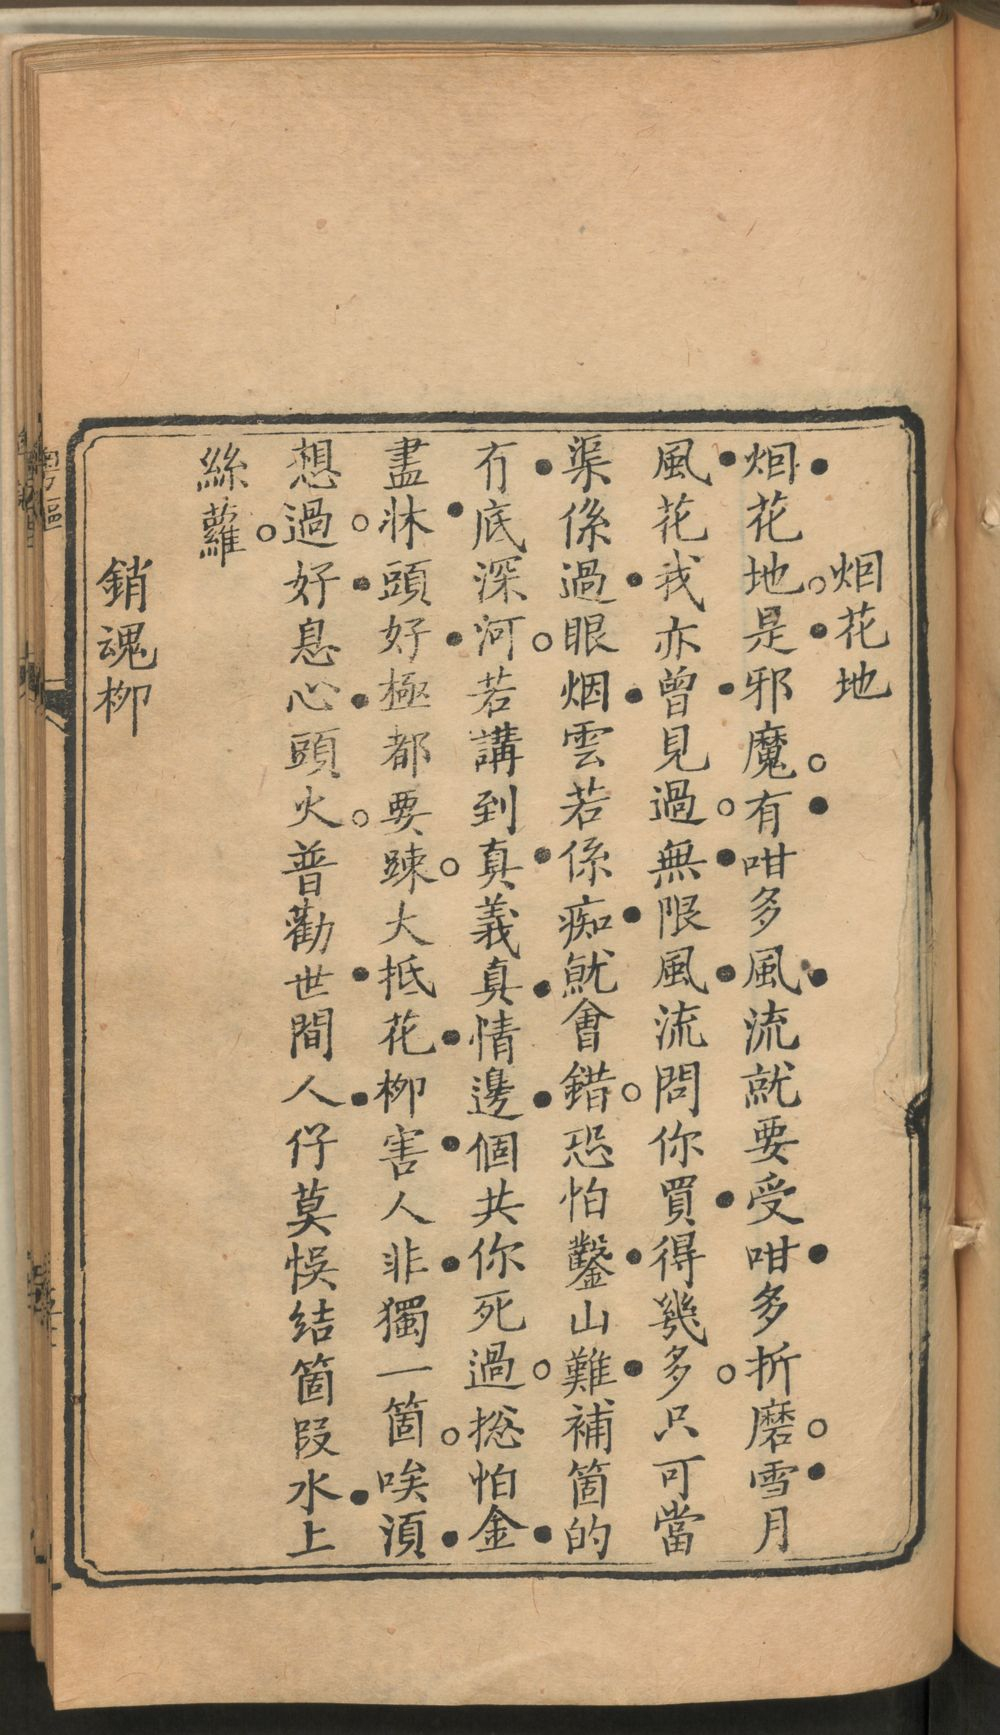 烟花地
烟花地是邪魔有咁多風流就要受咁多折磨雪月
風花我亦曾見過無限風流問你買得幾多只可當
渠係過眼烟雲若係痴就會錯恐怕鑿山難補箇的
冇底深河若講到真義真情邊個共你死過捴怕金
盡牀頭好極都要踈大抵花柳害人非獨一箇唉湏
想過好息心頭火普勸世間人仔莫悞结箇段水上
絲蘿
銷魂柳